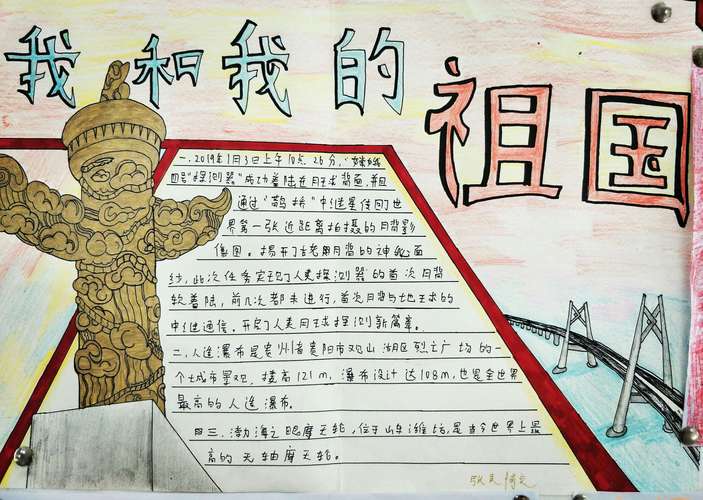 我和我的祖国
一.2019年1月3日上午10点26分,"嫦娥
四号"探测器"成功着陆在月球背面,并且
通过"鹊桥"中继星传回了世
界第一张近距离拍摄的月背影
像图。揭开了古老月背的神秘面
纱,此次任务实现了人类探测器的首次月背
软着陆,前几次都未进行,首次月背与地球的
中继通信,开启了人类月球探测新篇章。
二.人造瀑布是贵州省贵阳市观山湖区烈士广场的一
个城市景观,搂高121m,瀑布设计达108m,也是全世界
最高的人造瀑布。
四三.渤海之眼摩天轮,位于山东潍坊,是当今世界上最
高的无轴摩天轮。